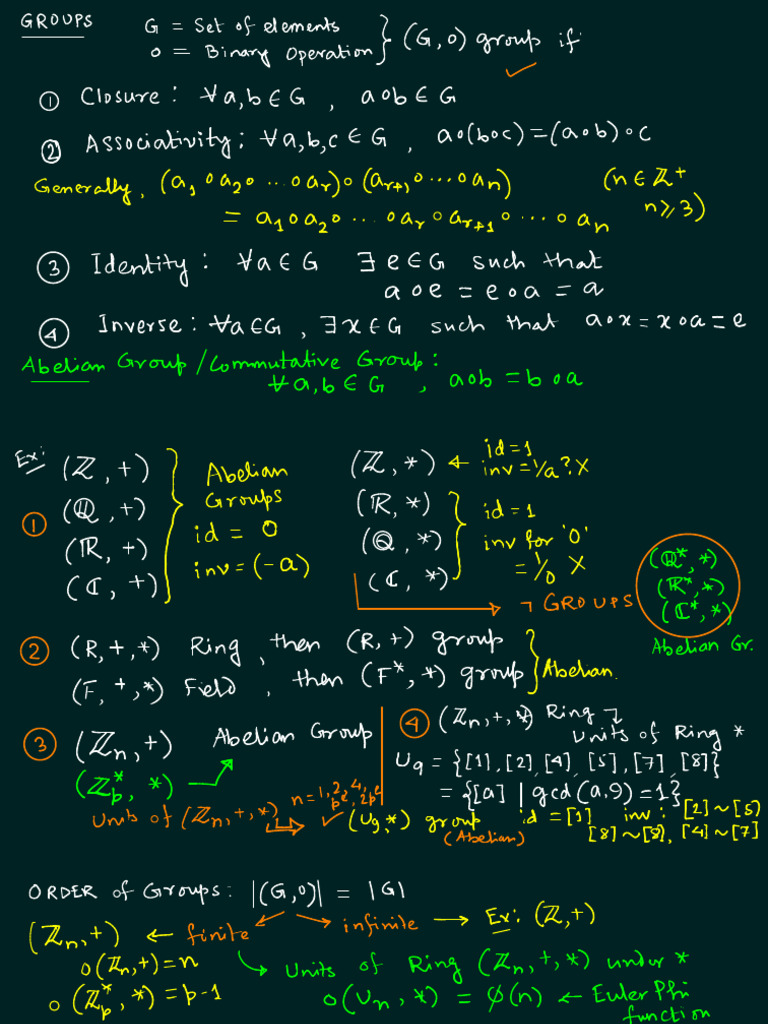 GROUPS
G = Set of elements
o = Binary Operation } (G, o) group if
① Closure : ∀a,b ∈ G , a o b ∈ G
② Associativity : ∀a,b,c ∈ G , a o (b o c) = (a o b) o c
Generally, (a₁ o a₂ o ... o aᵣ) o (aᵣ₊₁ o ... o aₙ) (n ∈ ℤ⁺
= a₁ o a₂ o ... o aᵣ o aᵣ₊₁ o ... o aₙ n ⩾ 3)
③ Identity : ∀a ∈ G ∃ e ∈ G such that
a o e = e o a = a
④ Inverse : ∀a ∈ G , ∃ x ∈ G such that a o x = x o a = e
Abelian Group / Commutative Group :
∀a,b ∈ G , a o b = b o a
Ex:
①
(ℤ, +)
(ℚ, +)
(ℝ, +)
(ℂ, +)
Abelian
Groups
id = 0
inv = (-a)
(ℤ, *) ← id = 1
inv = 1/a ? X
(ℝ, *)
(ℚ, *)
(ℂ, *)
id = 1
inv for '0'
= 1/0 X
→ ¬ GROUPS
(ℚ*, *)
(ℝ*, *)
(ℂ*, *)
Abelian Gr.
② (R, +, *) Ring , then (R, +) group
(F, +, *) Field , then (F*, *) group } Abelian.
③ (ℤₙ, +) Abelian Group
(ℤₚ*, *)
Units of (ℤₙ, +, *)
n = 1, 2, 4,
pᵉ, 2pᵉ
④ (ℤₙ, +, *) Ring
Units of Ring *
U₉ = {[1], [2], [4], [5], [7], [8]}
= {[a] | gcd(a, 9) = 1}
✓ (U₉, *) group id = [1] inv : [2] ~ [5]
(Abelian) [8] ~ [8], [4] ~ [7]
ORDER of Groups : |(G, o)| = |G|
(ℤₙ, +) ← finite infinite → Ex: (ℤ, +)
o(ℤₙ, +) = n
o(ℤₚ*, *) = p-1
Units of Ring (ℤₙ, +, *) under *
o(Uₙ, *) = φ(n) ← Euler Phi
function